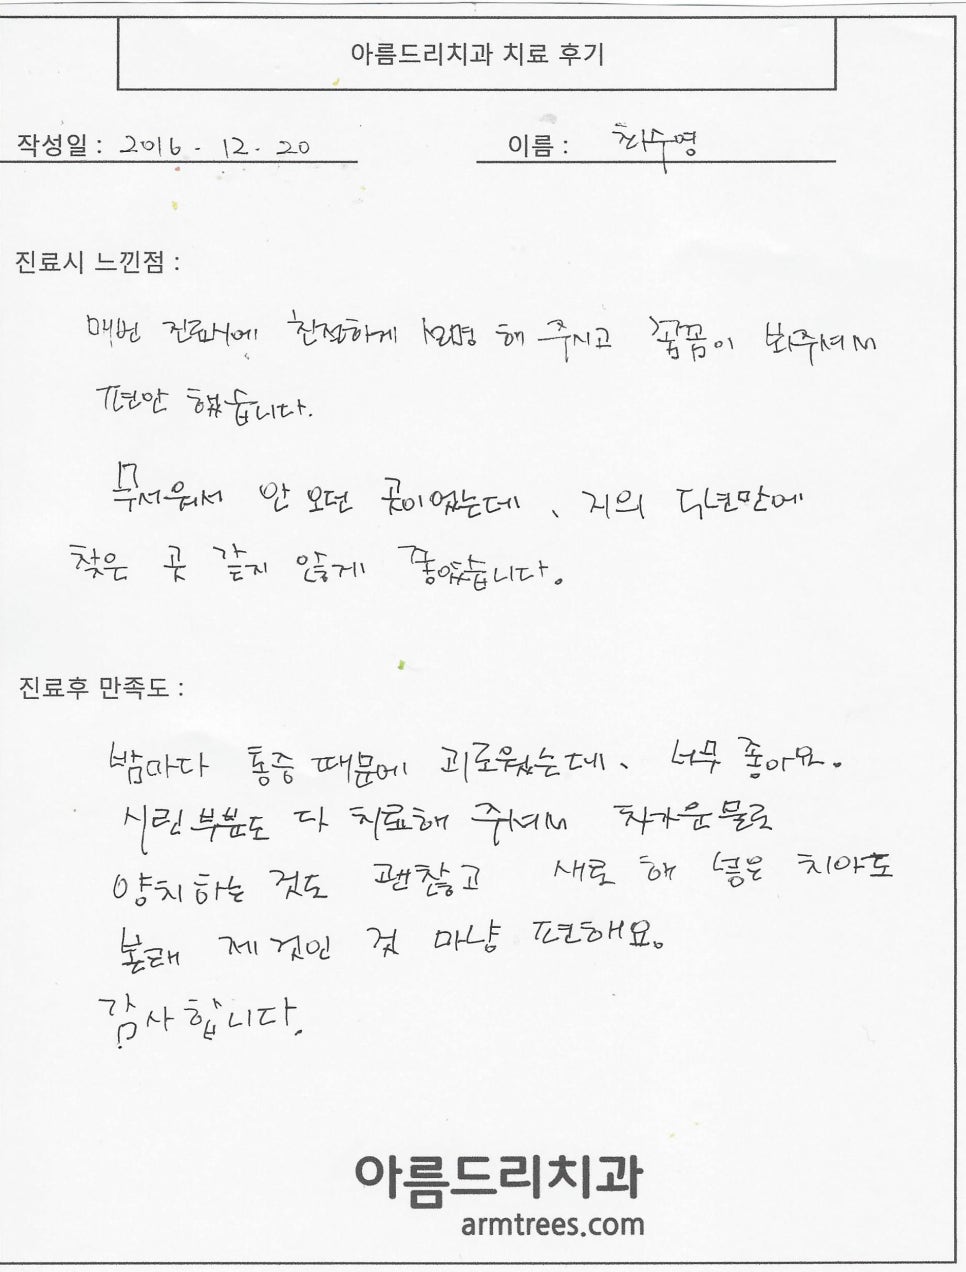 아름드리치과 치료 후기
작성일 : 2016 - 12 - 20 이름 : 차수영
진료시 느낀점 :
매번 진료시에 친절하게 설명 해 주시고 꼼꼼이 봐주셔서
편안 했습니다.
무서워서 안 오던 곳이었는데, 거의 수년만에
찾은 곳 같지 않게 좋았습니다.
진료후 만족도 :
밤마다 통증 때문에 괴로웠는데, 너무 좋아요.
시린 부분도 다 치료해 주셔서 차가운 물로
양치하는 것도 괜찮고 새로 해 넣은 치아도
본래 제 것인 것 마냥 편해요.
감사합니다.
아름드리치과
armtrees.com